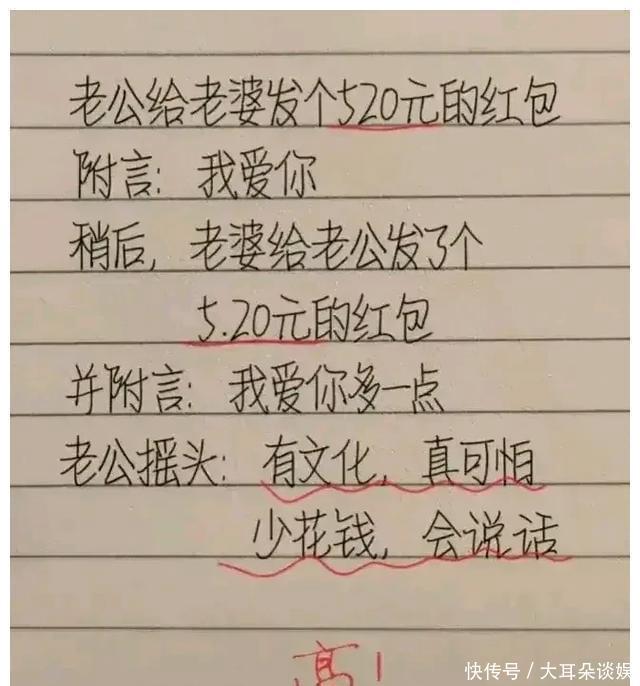 老公给老婆发个520元的红包
附言：我爱你
稍后，老婆给老公发了个
5.20元的红包
并附言：我爱你多一点
老公摇头：有文化，真可怕
少花钱，会说话
高！
快传号/大耳朵谈娱